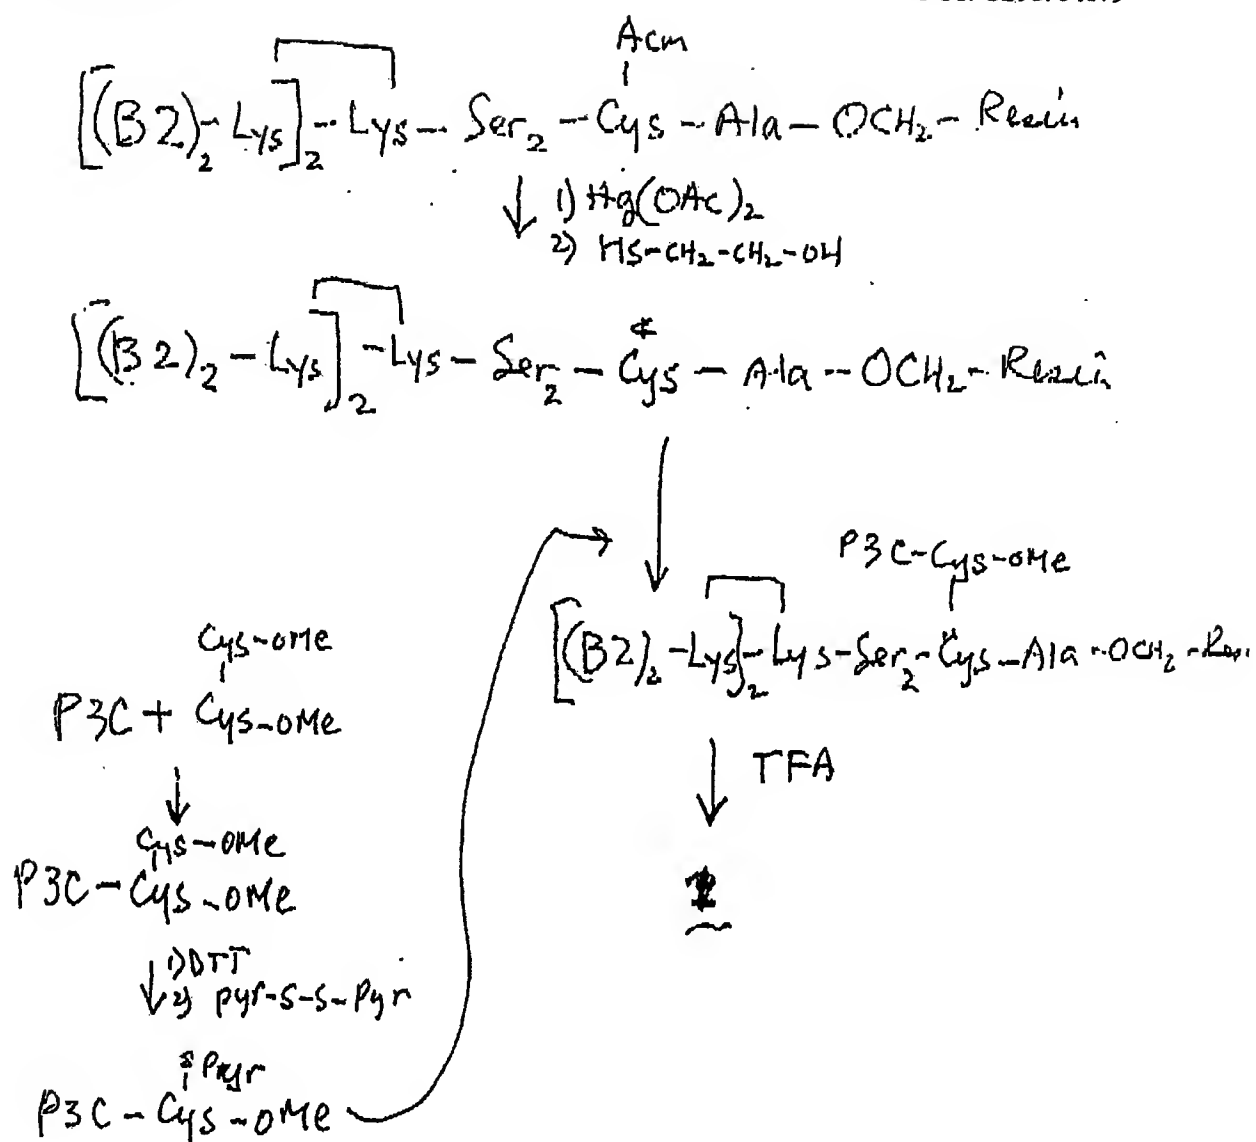 Acm
[(B2)₂-Lys]₂-Lys-Ser₂-Cys-Ala-OCH₂-Resin
1) Hg(OAc)₂
2) HS-CH₂-CH₂-OH
[(B2)₂-Lys]₂-Lys-Ser₂-Cys-Ala-OCH₂-Resin
P3C-Cys-OMe
[(B2)₂-Lys]₂-Lys-Ser₂-Cys-Ala-OCH₂-
TFA
Cys-OMe
P3C + Cys-OMe
Cys-OMe
P3C-Cys-OMe
1) DTT
2) Pyr-S-S-Pyr
P3C-Cys-OMe